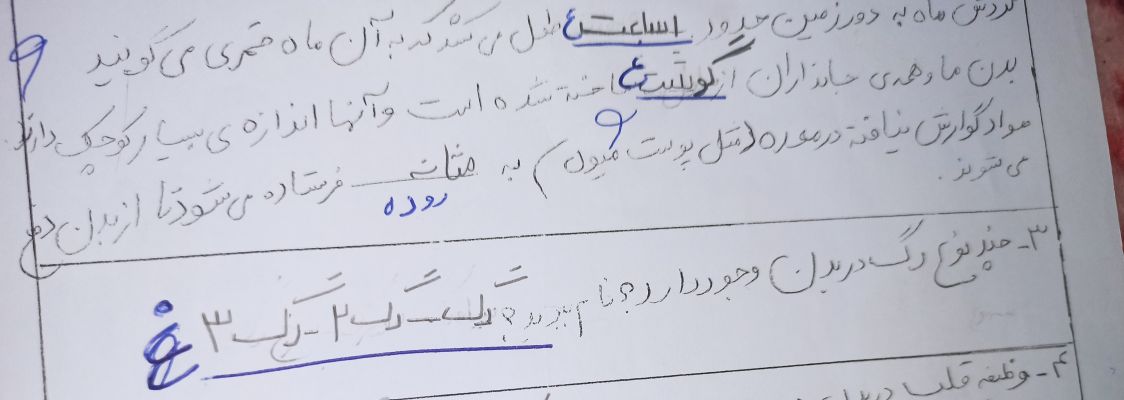 گردش ماه به دور زمین حدود ۱ساعت طول می کشد که به آن ماه قمری می گویند
بدن ما و همه ی جانداران از گوشت ساخته شده است و آنها اندازه ی بسیار کوچک دارند
مواد گوارش نیافته در معده (مثل پوست میوه) به مثانه فرستاده می شود تا از بدن دفع
می شوند.
روده
۳- چند نوع رگ در بدن وجود دارد؟ نام ببرید؟ رگ - رگ ۲ - رگ ۳
۴- وظیفه قلب در